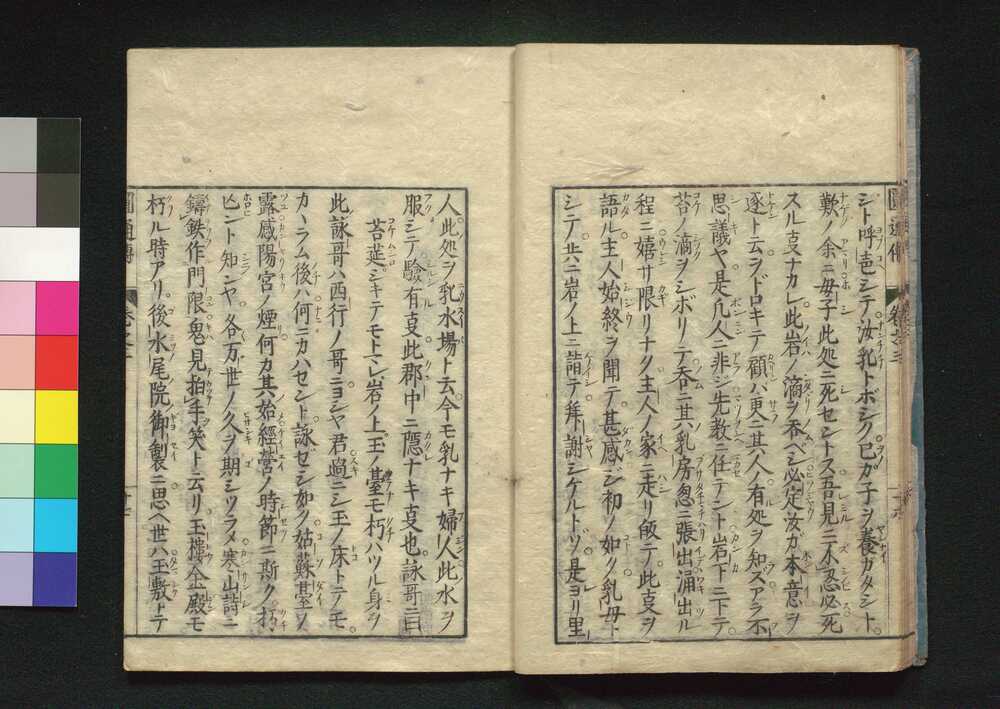 シト呼壱シテ汝乳トボシク己ガ子ヲ養ガタシト
歎ノ余ニ母子此処ニ死セントス吾見ニ不忍必死
スル叓ナカレ此岩ノ滴ヲ呑ベシ必定汝ガ本意ヲ
逐ト云ヲドロキテ顧バ更ニ其人ノ有処ヲ知ズアラ不
思議ヤ是凡人ニ非ジ先教ニ任テント岩下ニ下テ
苔ノ滴ヲシボリテ呑ニ其乳房忽ニ張出涌出ル
程ニ嬉サ限リナク主人ノ家ニ走リ皈テ此叓ヲ
語ル主人始終ヲ聞テ甚感ジ初ノ如ク乳母ト
シテ共ニ岩ノ上ニ詣テ拜謝シケルトゾ是ヨリ里
圓通傳 巻之三
人此処ヲ乳水場ト云今モ乳ナキ婦人此水ヲ
服シテ驗有叓此郡中ニ隠ナキ叓也詠哥ニ曰
苔莚シキテモトマレ岩ノ上玉ノ臺モ朽ハツル身ヲ
此詠哥ハ西行ノ哥ニヨシヤ君過ニシ玉ノ床トテモ
カヽラム後ハ何ニカハセント詠ゼシ如ク姑蘇臺ノ
露咸陽宮ノ煙何カ其始經營ノ時節ニ斯ク朽
亡ント知ンヤ各万世ノ久ヲ期シツラメ寒山詩ニ
鑄鉄作門限鬼見拍手笑ト云リ玉樓金殿モ
朽ル時アリ後水尾院御製ニ思ヘ世ハ玉敷トテ
圓通傳 巻之三